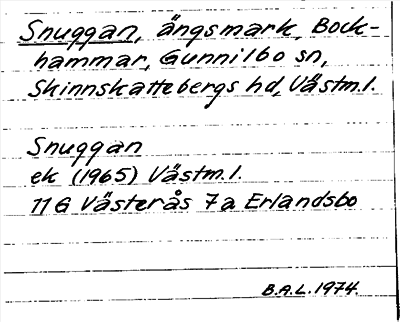 Snuggan, ängsmark, Bock-
hammar, Gunnilbo sn,
Skinnskattebergs hd, Västm.l.
Snuggan
ek (1965) Västm.l.
11G Västerås 7a Erlandsbo
B.A.L. 1974